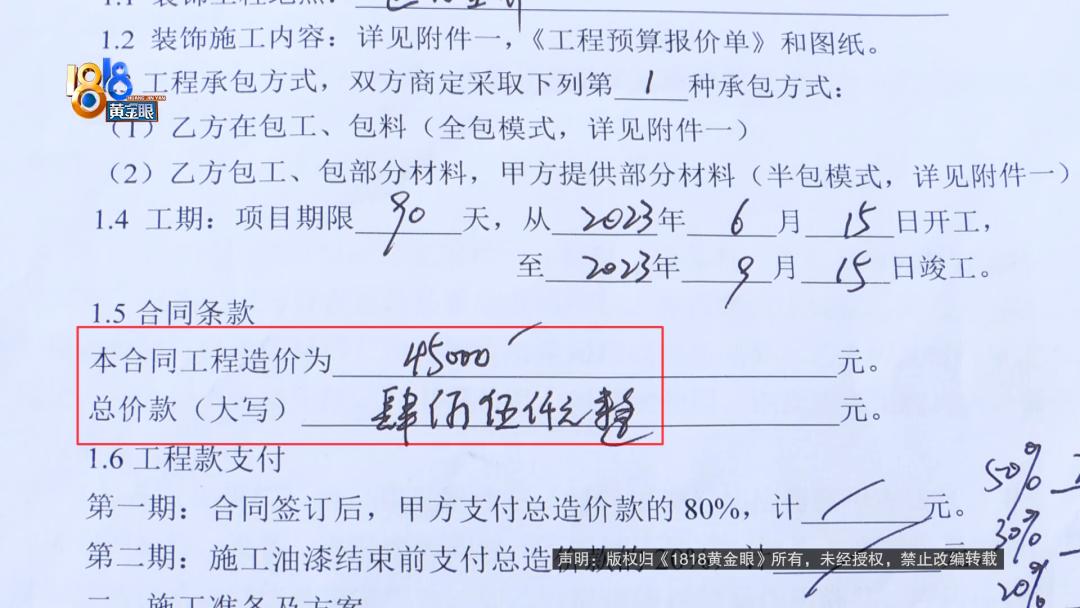 1.2 装饰施工内容：详见附件一，《工程预算报价单》和图纸。
1818
黄金眼
工程承包方式，双方商定采取下列第 1 种承包方式：
（1）乙方在包工、包料（全包模式，详见附件一）
（2）乙方包工、包部分材料，甲方提供部分材料（半包模式，详见附件一）
1.4 工期：项目期限 90 天，从 2023 年 6 月 15 日开工，
至 2023 年 9 月 15 日竣工。
1.5 合同条款
本合同工程造价为 45000 元。
总价款（大写） 肆 伍仟元整 元。
1.6 工程款支付
50%
第一期：合同签订后，甲方支付总造价款的 80%，计 元。
30%
第二期：施工油漆结束前支付总造
声明：版权归《1818黄金眼》所有，未经授权，禁止改编转载
20%
二、施工准备及方案